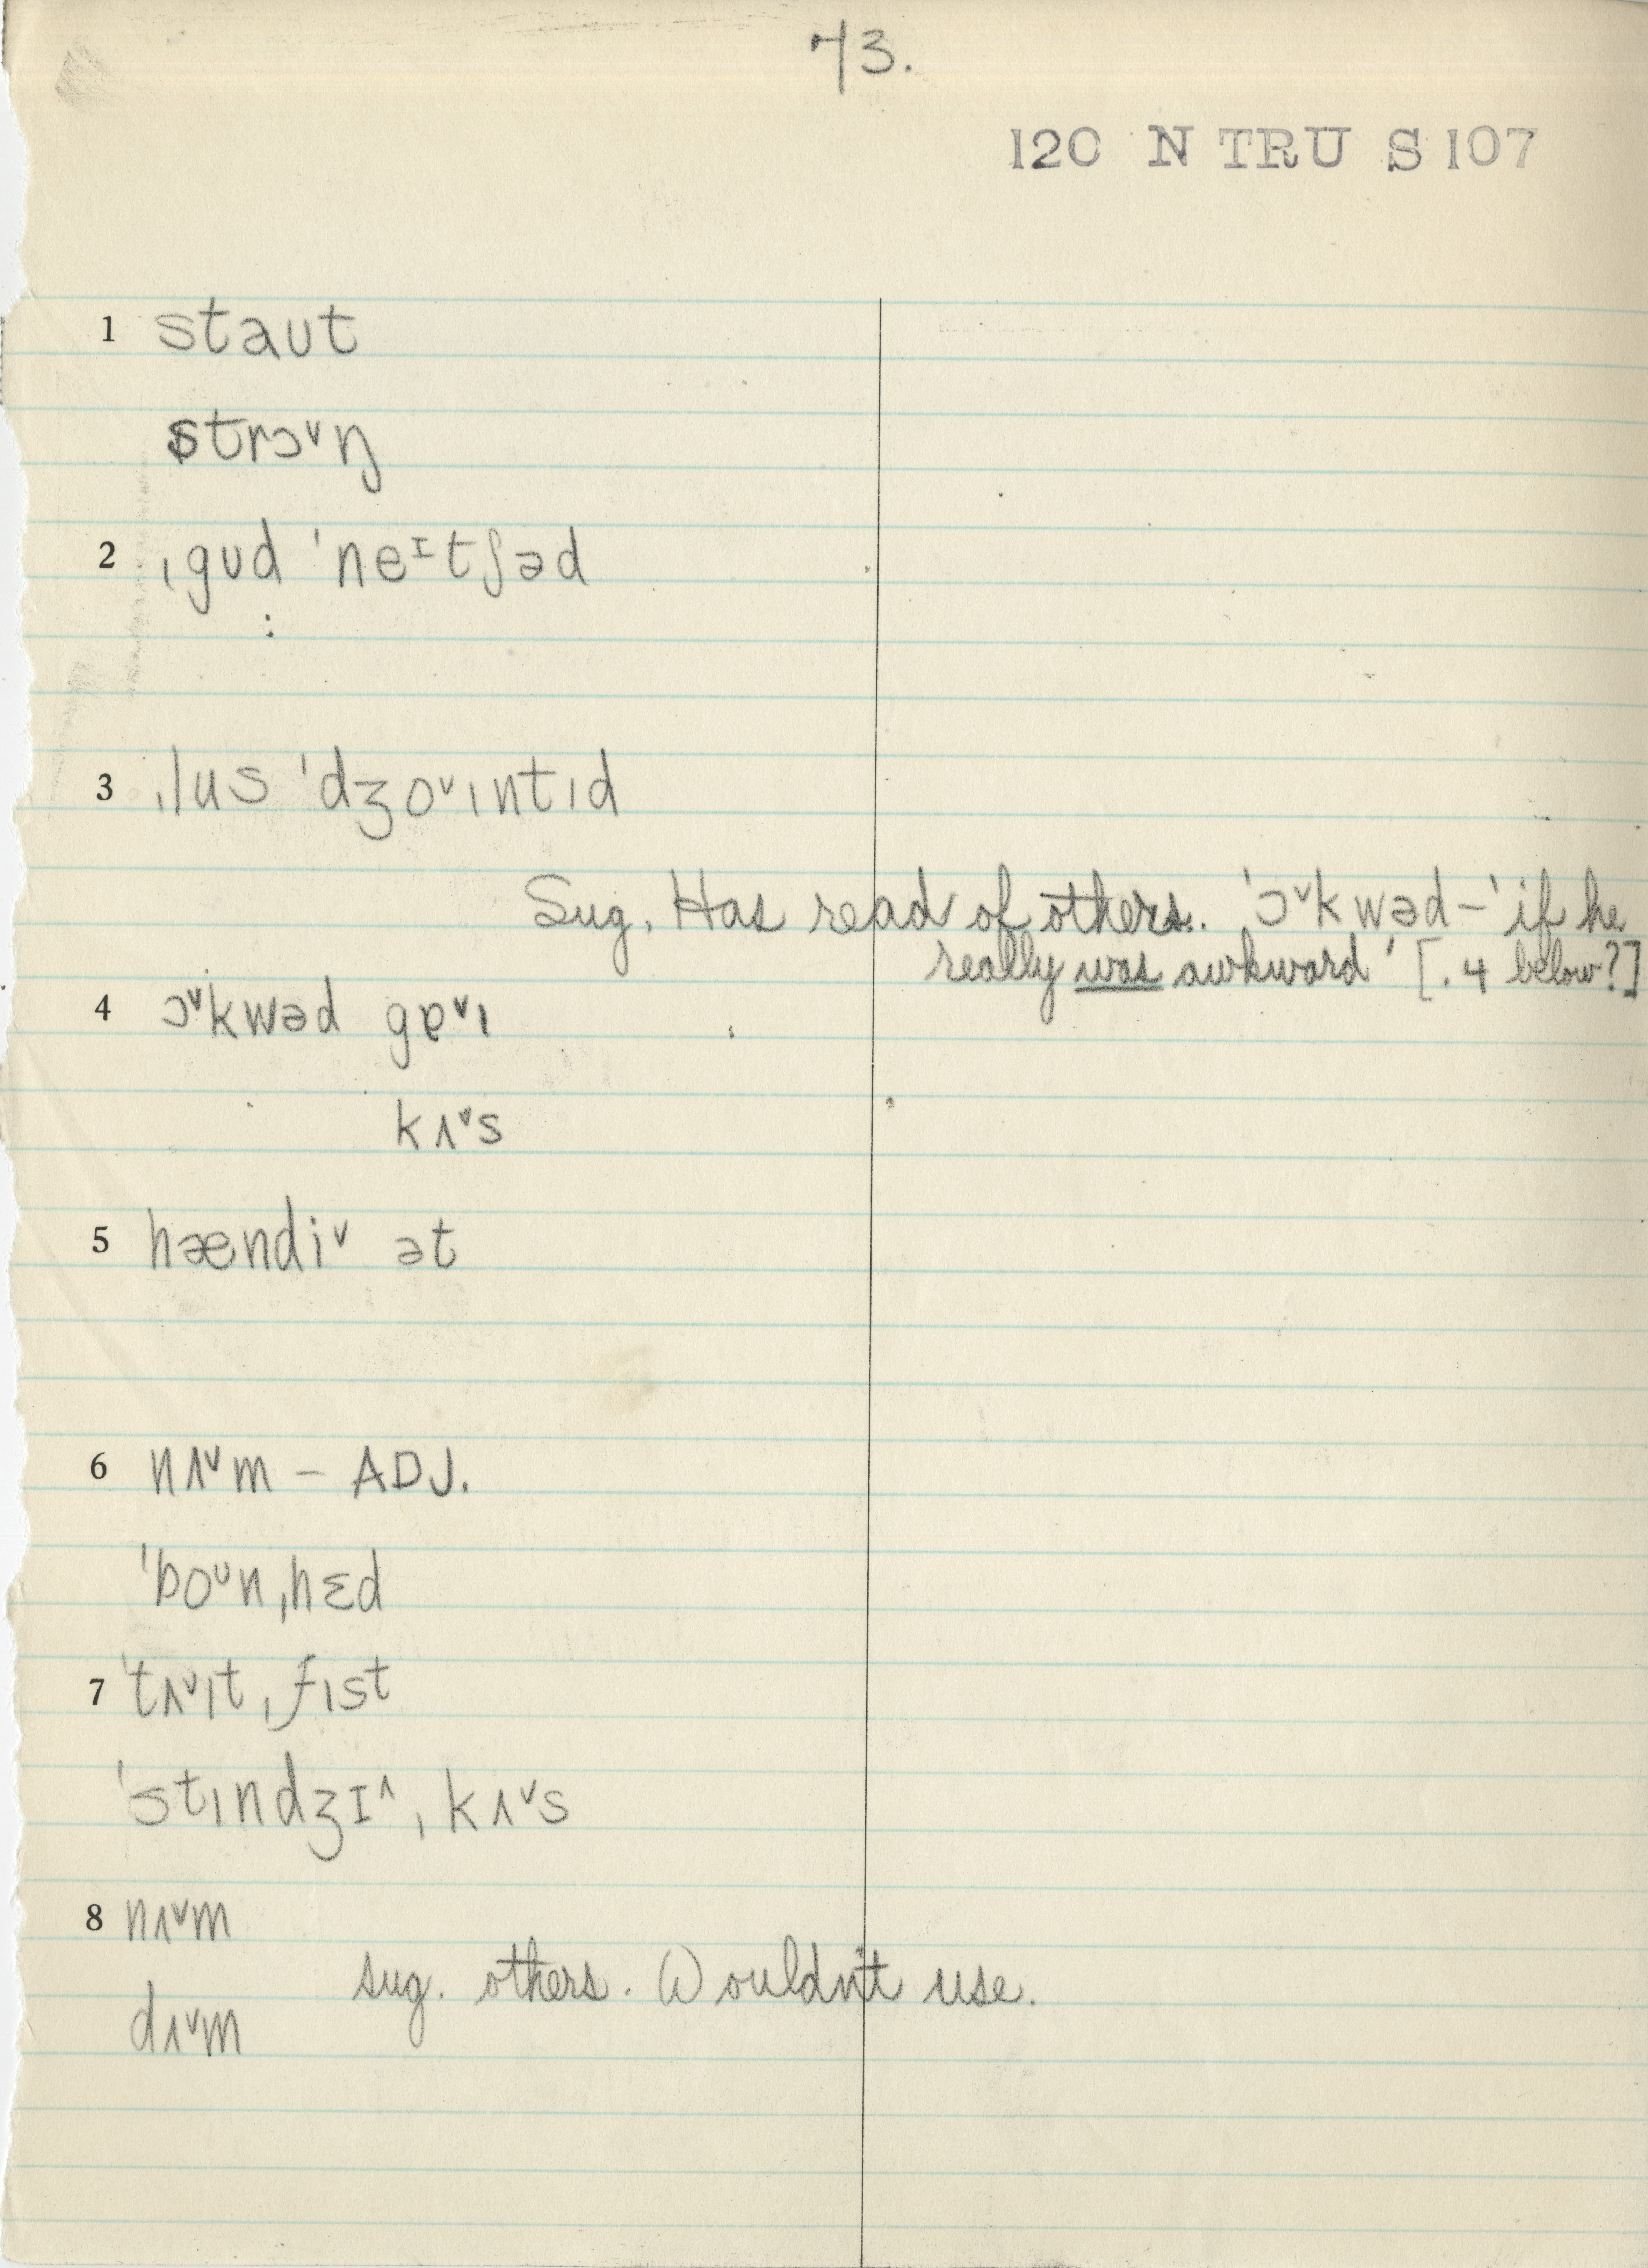 73.
120 N TRU S107
1 staʊt
strɔ˅ŋ
2 ˌgʊd ˈneᶦtʃəd
:
3 ˌlus ˈdʒo˅ɪntɪd
Sug. Has read of others. 'ɔ˅kwəd–' if he
really was awkward' [.4 below?]
4 ɔ˅kwəd gɐ˅ɪ
kʌ˅s
5 hændi˅ ət
6 nʌ˅m – ADJ.
ˈboᶷnˌhɛd
7 ˈtʌ˅ɪtˌfɪst
ˈstɪndʒɪ˄ˌkʌ˅s
8 nʌ˅m
sug. others. Wouldn't use.
dʌ˅m